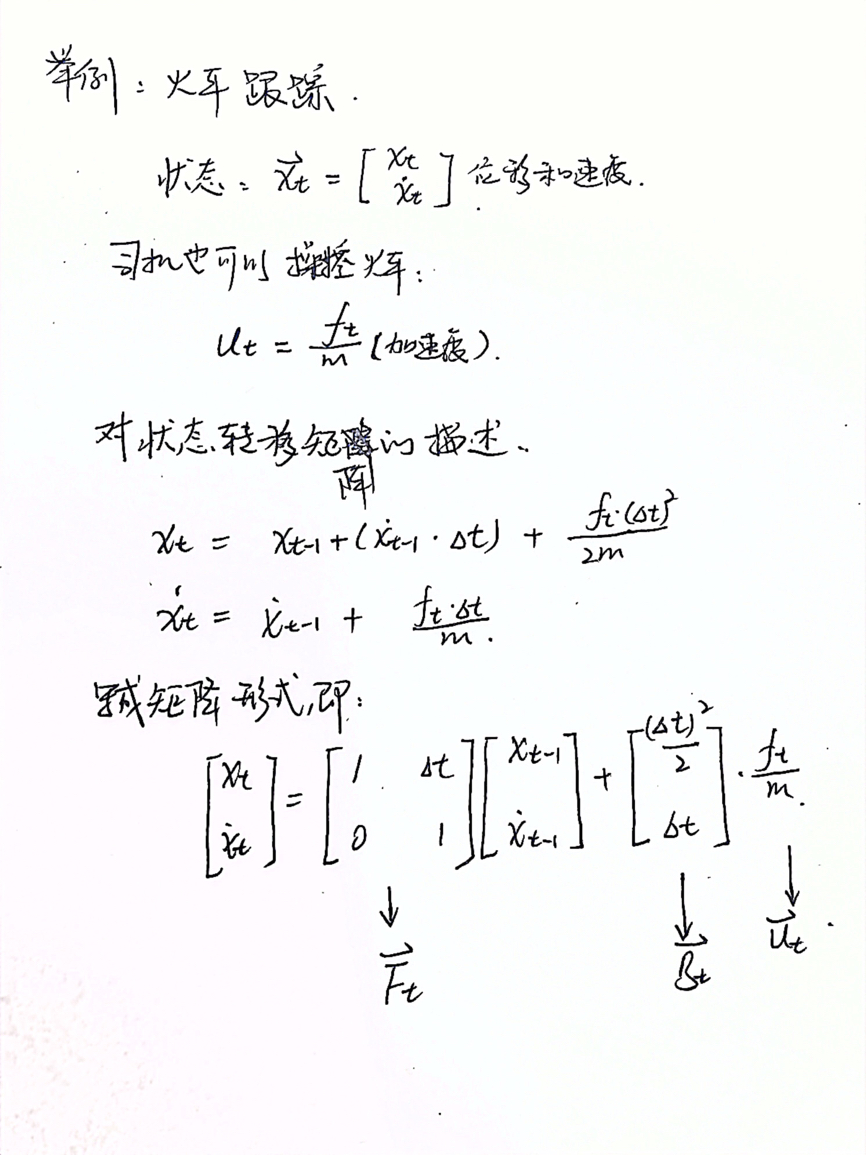 举例：火车跟踪.
状态：$\vec{x_t} = \begin{bmatrix} x_t \\ \dot{x}_t \end{bmatrix}$ 位移和速度.
司机也可以操控火车：
$u_t = \frac{f_t}{m}$ (加速度).
对状态转移矩阵的描述.
$x_t = x_{t-1} + (\dot{x}_{t-1} \cdot \Delta t) + \frac{f_t \cdot (\Delta t)^2}{2m}$
$\dot{x}_t = \dot{x}_{t-1} + \frac{f_t \cdot \Delta t}{m}.$
写成矩阵形式,即：
$\begin{bmatrix} x_t \\ \dot{x}_t \end{bmatrix} = \begin{bmatrix} 1 & \Delta t \\ 0 & 1 \end{bmatrix} \begin{bmatrix} x_{t-1} \\ \dot{x}_{t-1} \end{bmatrix} + \begin{bmatrix} \frac{(\Delta t)^2}{2} \\ \Delta t \end{bmatrix} \cdot \frac{f_t}{m}.$
↓ ↓ ↓
$\vec{F_t}$ $\vec{B_t}$ $\vec{u_t}$.